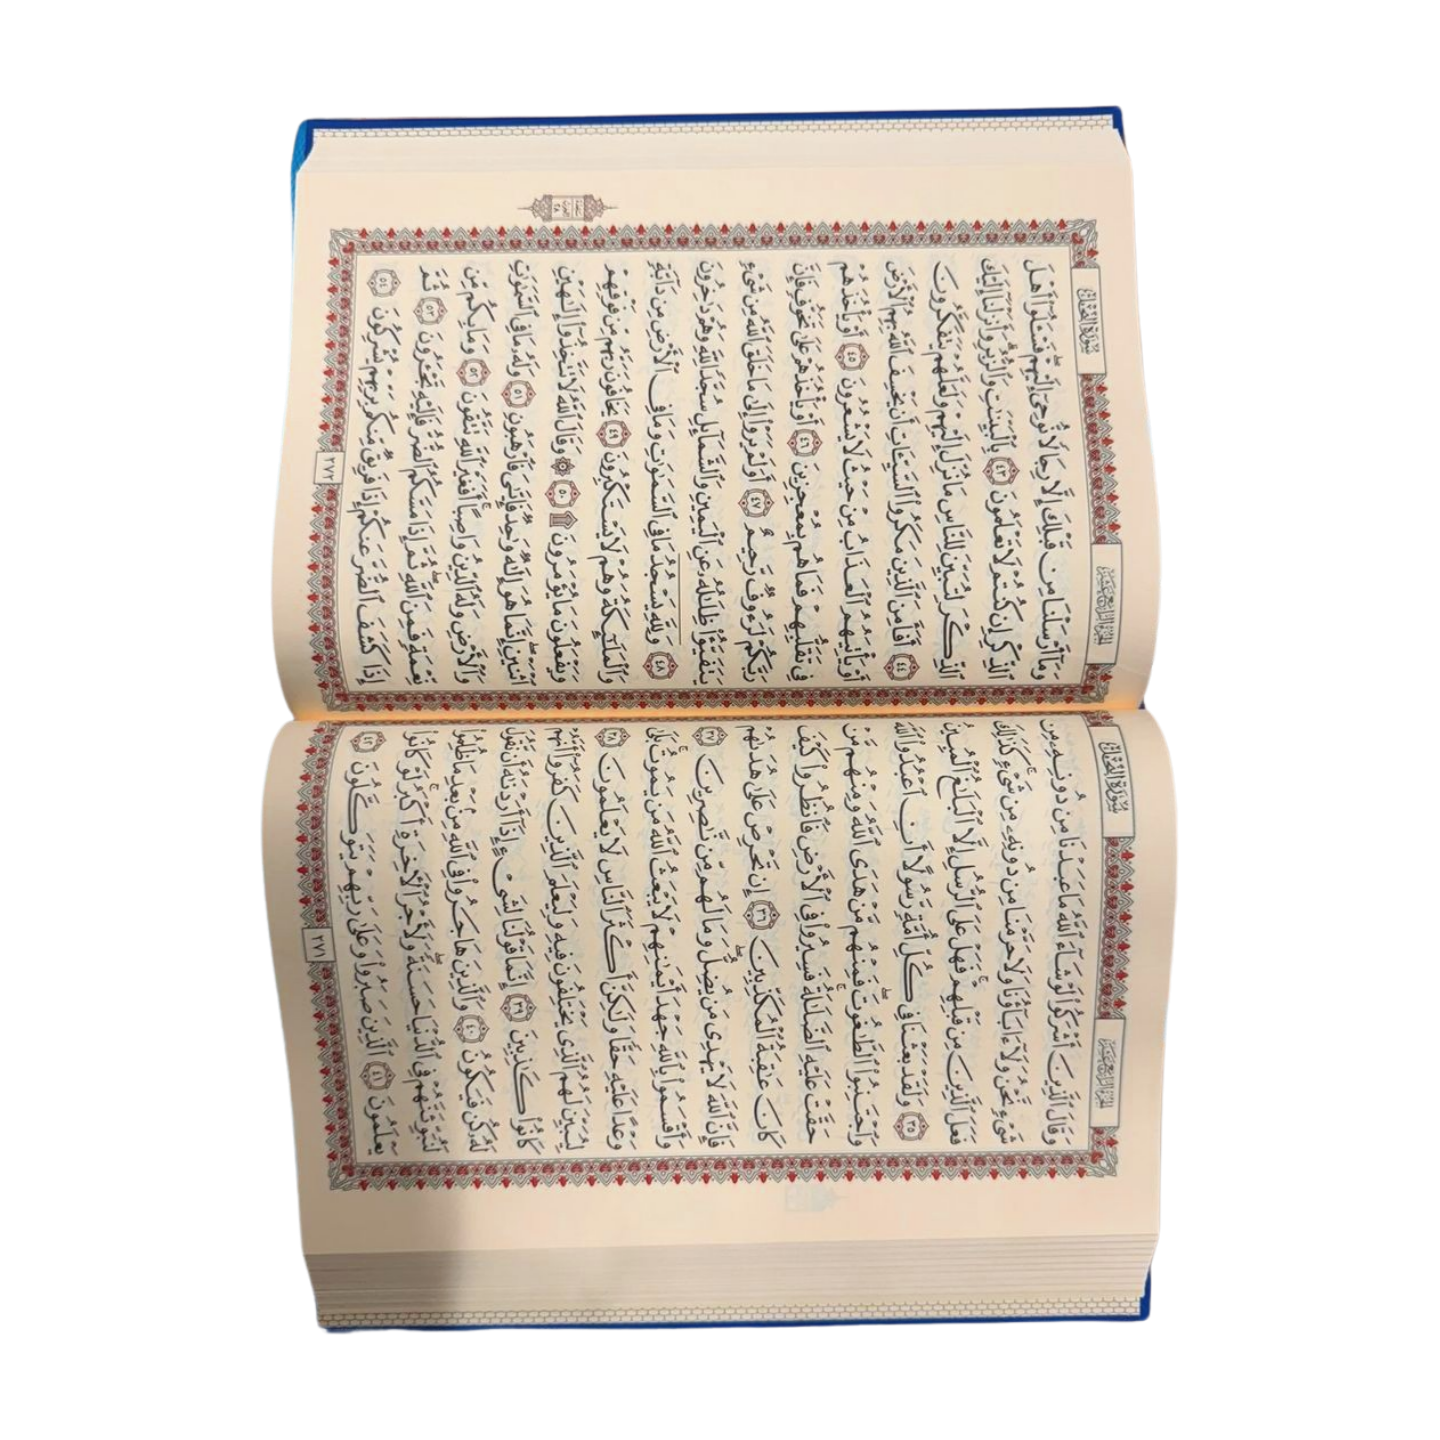 الجزء الرابع عشر
سورة النحل
وَقَالَ ٱلَّذِينَ أَشْرَكُوا۟ لَوْ شَآءَ ٱللَّهُ مَا عَبَدْنَا مِن دُونِهِۦ مِن
شَىْءٍ نَّحْنُ وَلَآ ءَابَآؤُنَا وَلَا حَرَّمْنَا مِن دُونِهِۦ مِن شَىْءٍ ۚ كَذَٰلِكَ
فَعَلَ ٱلَّذِينَ مِن قَبْلِهِمْ ۚ فَهَلْ عَلَى ٱلرُّسُلِ إِلَّا ٱلْبَلَٰغُ ٱلْمُبِينُ
٣٥ وَلَقَدْ بَعَثْنَا فِى كُلِّ أُمَّةٍ رَّسُولًا أَنِ ٱعْبُدُوا۟ ٱللَّهَ
وَٱجْتَنِبُوا۟ ٱلطَّٰغُوتَ ۖ فَمِنْهُم مَّنْ هَدَى ٱللَّهُ وَمِنْهُم مَّنْ
حَقَّتْ عَلَيْهِ ٱلضَّلَٰلَةُ ۚ فَسِيرُوا۟ فِى ٱلْأَرْضِ فَٱنظُرُوا۟ كَيْفَ
كَانَ عَٰقِبَةُ ٱلْمُكَذِّبِينَ ٣٦ إِن تَحْرِصْ عَلَىٰ هُدَىٰهُمْ
فَإِنَّ ٱللَّهَ لَا يَهْدِى مَن يُضِلُّ ۖ وَمَا لَهُم مِّن نَّٰصِرِينَ ٣٧
وَأَقْسَمُوا۟ بِٱللَّهِ جَهْدَ أَيْمَٰنِهِمْ ۙ لَا يَبْعَثُ ٱللَّهُ مَن يَمُوتُ ۚ بَلَىٰ
وَعْدًا عَلَيْهِ حَقًّا وَلَٰكِنَّ أَكْثَرَ ٱلنَّاسِ لَا يَعْلَمُونَ ٣٨
لِيُبَيِّنَ لَهُمُ ٱلَّذِى يَخْتَلِفُونَ فِيهِ وَلِيَعْلَمَ ٱلَّذِينَ كَفَرُوٓا۟ أَنَّهُمْ
كَانُوا۟ كَٰذِبِينَ ٣٩ إِنَّمَا قَوْلُنَا لِشَىْءٍ إِذَآ أَرَدْنَٰهُ أَن نَّقُولَ
لَهُۥ كُن فَيَكُونُ ٤٠ وَٱلَّذِينَ هَاجَرُوا۟ فِى ٱللَّهِ مِنۢ بَعْدِ مَا ظُلِمُوا۟
لَنُبَوِّئَنَّهُمْ فِى ٱلدُّنْيَا حَسَنَةً ۖ وَلَأَجْرُ ٱلْءَاخِرَةِ أَكْبَرُ ۚ لَوْ كَانُوا۟
يَعْلَمُونَ ٤١ ٱلَّذِينَ صَبَرُوا۟ وَعَلَىٰ رَبِّهِمْ يَتَوَكَّلُونَ ٤٢
٢٧١
الجزء الرابع عشر
سورة النحل
وَمَآ أَرْسَلْنَا مِن قَبْلِكَ إِلَّا رِجَالًا نُّوحِىٓ إِلَيْهِمْ ۚ فَسْـَٔلُوٓا۟ أَهْلَ
ٱلذِّكْرِ إِن كُنتُمْ لَا تَعْلَمُونَ ٤٣ بِٱلْبَيِّنَٰتِ وَٱلزُّبُرِ ۗ وَأَنزَلْنَآ إِلَيْكَ
ٱلذِّكْرَ لِتُبَيِّنَ لِلنَّاسِ مَا نُزِّلَ إِلَيْهِمْ وَلَعَلَّهُمْ يَتَفَكَّرُونَ
٤٤ أَفَأَمِنَ ٱلَّذِينَ مَكَرُوا۟ ٱلسَّيِّـَٔاتِ أَن يَخْسِفَ ٱللَّهُ بِهِمُ ٱلْأَرْضَ
أَوْ يَأْتِيَهُمُ ٱلْعَذَابُ مِنْ حَيْثُ لَا يَشْعُرُونَ ٤٥ أَوْ يَأْخُذَهُمْ
فِى تَقَلُّبِهِمْ فَمَا هُم بِمُعْجِزِينَ ٤٦ أَوْ يَأْخُذَهُمْ عَلَىٰ تَخَوُّفٍ فَإِنَّ
رَبَّكُمْ لَرَءُوفٌ رَّحِيمٌ ٤٧ أَوَلَمْ يَرَوْا۟ إِلَىٰ مَا خَلَقَ ٱللَّهُ مِن شَىْءٍ
يَتَفَيَّؤُا۟ ظِلَٰلُهُۥ عَنِ ٱلْيَمِينِ وَٱلشَّمَآئِلِ سُجَّدًا لِّلَّهِ وَهُمْ دَٰخِرُونَ
٤٨ وَلِلَّهِ يَسْجُدُ مَا فِى ٱلسَّمَٰوَٰتِ وَمَا فِى ٱلْأَرْضِ مِن دَآبَّةٍ
وَٱلْمَلَٰٓئِكَةُ وَهُمْ لَا يَسْتَكْبِرُونَ ٤٩ يَخَافُونَ رَبَّهُم مِّن فَوْقِهِمْ
وَيَفْعَلُونَ مَا يُؤْمَرُونَ ۩ ٥٠ ۞ وَقَالَ ٱللَّهُ لَا تَتَّخِذُوٓا۟ إِلَٰهَيْنِ
ٱثْنَيْنِ ۖ إِنَّمَا هُوَ إِلَٰهٌ وَٰحِدٌ ۖ فَإِيَّٰىَ فَٱرْهَبُونِ ٥١ وَلَهُۥ مَا فِى ٱلسَّمَٰوَٰتِ
وَٱلْأَرْضِ وَلَهُ ٱلدِّينُ وَاصِبًا ۚ أَفَغَيْرَ ٱللَّهِ تَتَّقُونَ ٥٢ وَمَا بِكُم مِّن
نِّعْمَةٍ فَمِنَ ٱللَّهِ ۖ ثُمَّ إِذَا مَسَّكُمُ ٱلضُّرُّ فَإِلَيْهِ تَجْـَٔرُونَ ٥٣ ثُمَّ
إِذَا كَشَفَ ٱلضُّرَّ عَنكُمْ إِذَا فَرِيقٌ مِّنكُم بِرَبِّهِمْ يُشْرِكُونَ ٥٤
٢٧٢